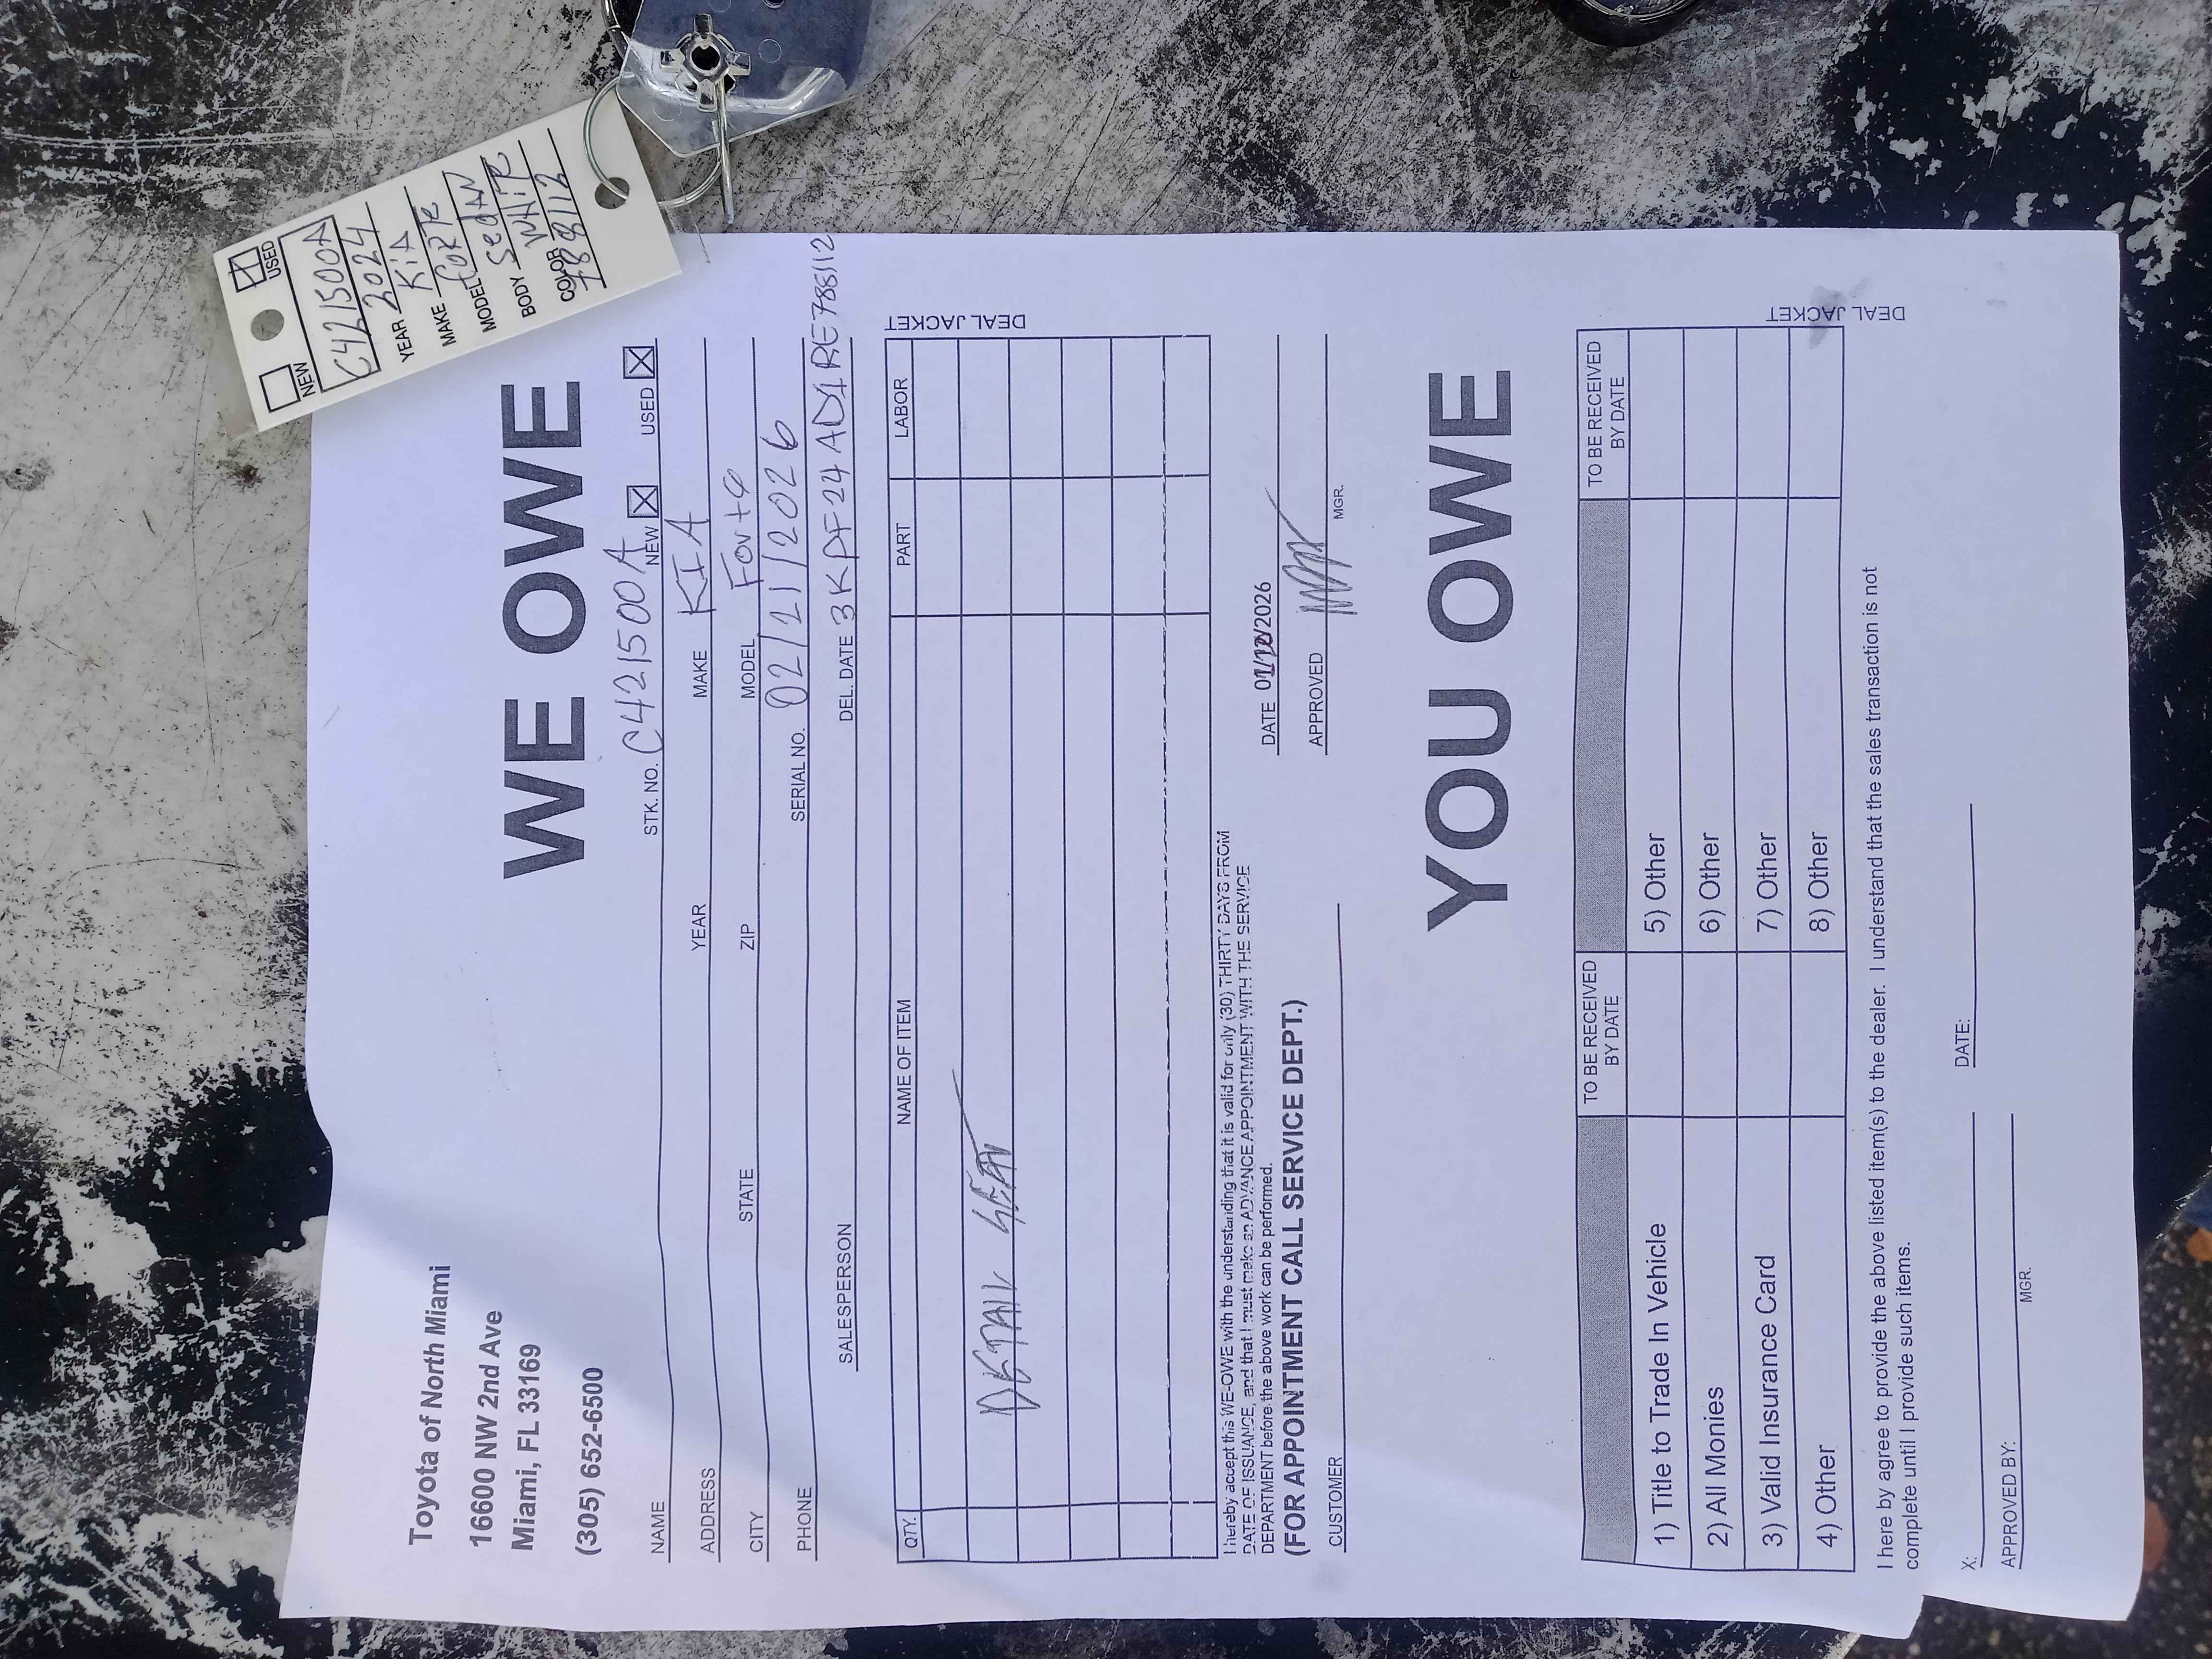 NEW USED
C421500A
YEAR 2024
MAKE KiA
MODEL forte
BODY sedAN
COLOR WHITE
788112
Toyota of North Miami
16600 NW 2nd Ave
Miami, FL 33169
(305) 652-6500
WE OWE
STK. NO. C421500A NEW USED
NAME
ADDRESS YEAR MAKE KIA
CITY STATE ZIP MODEL Forte
PHONE SERIAL NO. 02/21/2026
SALESPERSON DEL. DATE 3KPF24AD1RE788112
QTY. NAME OF ITEM PART LABOR
DETAIL SEAT
DEAL JACKET
I hereby accept this WE-OWE with the understanding that it is valid for only (30) THIRTY DAYS FROM
DATE OF ISSUANCE, and that I must make an ADVANCE APPOINTMENT WITH THE SERVICE
DEPARTMENT before the above work can be performed.
(FOR APPOINTMENT CALL SERVICE DEPT.)
DATE /2026
CUSTOMER APPROVED
MGR.
YOU OWE
TO BE RECEIVED BY DATE TO BE RECEIVED BY DATE
1) Title to Trade In Vehicle 5) Other
2) All Monies 6) Other
3) Valid Insurance Card 7) Other
4) Other 8) Other
DEAL JACKET
I here by agree to provide the above listed item(s) to the dealer. I understand that the sales transaction is not
complete until I provide such items.
X: DATE:
APPROVED BY:
MGR.